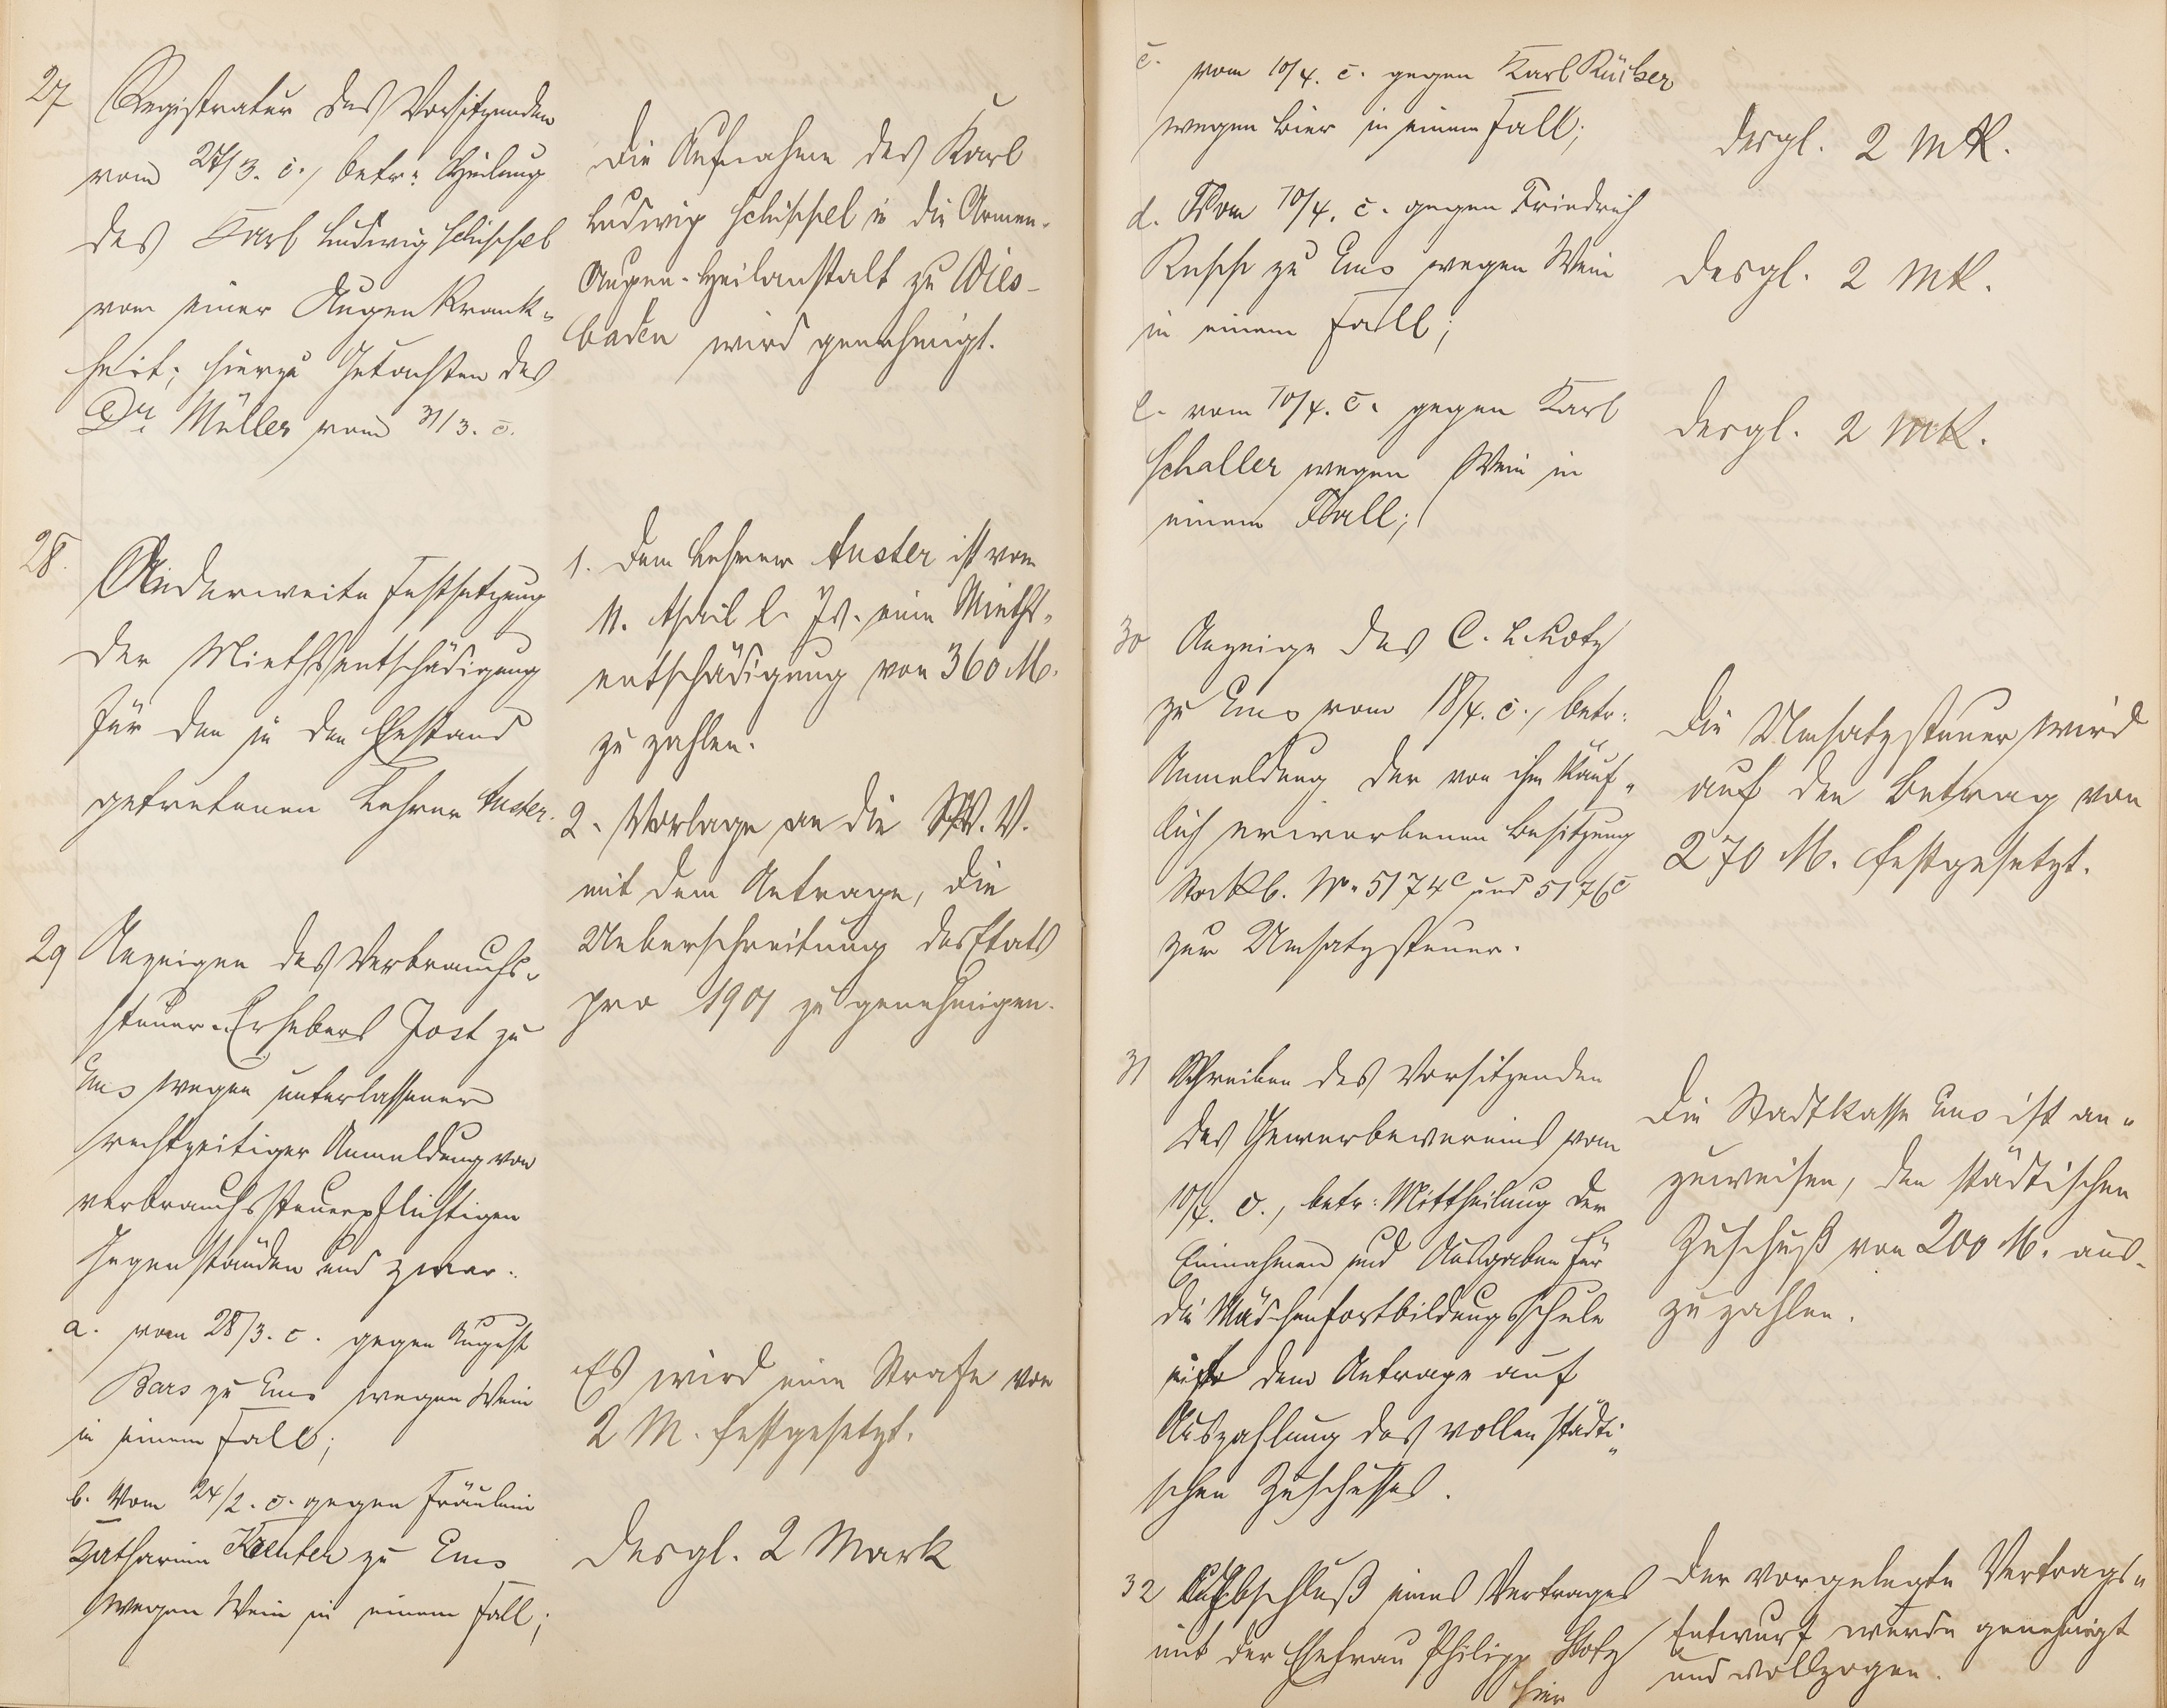 27
Registratur des Vorsitzenden
vom 27/3. c., betr: Heilung
des Karl Ludwig Schissel
von einer Augenkrank-
heit; hierzu Gutachten des
Dr. Müller vom 31/3. c.
Die Aufnahme des Karl
Ludwig Schissel in die Armen-
Augen-Heilanstalt zu Wies-
baden wird genehmigt.
28.
Anderweite Festsetzung
der Miethsentschädigung
für den in den Ehestand
getretenen Lehrer Auster.
1. Dem Lehrer Auster ist vom
11. April l. Js. eine Mieths-
entschädigung von 360 M.
zu zahlen.
2. Vorlage an die St.V.V.
mit dem Antrage, die
Ueberschreitung des Etats
pro 1901 zu genehmigen.
29 Anzeigen des Verbrauchs-
steuer-Erhebers Jost zu
Ems wegen unterlassener
rechtzeitiger Anmeldung von
verbrauchssteuerpflichtigen
Gegenständen und zwar:
a. vom 28/3. c. gegen August
Bars zu Ems wegen Wein
in einem Fall;
Es wird eine Strafe von
2 M. festgesetzt.
b. Vom 24/2. c. gegen Fräulein
Katharina zu Ems
wegen Wein in einem Fall;
Desgl. 2 Mark
c. vom 10/4. c. gegen Karl Rücker
wegen Bier in einem Fall;
desgl. 2 Mk.
d. Vom 10/4. c. gegen Friedrich
zu Ems wegen Wein
in einem Fall;
desgl. 2 Mk.
e. vom 10/4. c. gegen Karl
Schaller wegen Wein in
einem Fall;
desgl. 2 Mk.
30 Anzeige des C. L. Kotz
zu Ems vom 18/4. c., betr:
Anmeldung der von ihm käuf-
lich erworbenen Besitzung
Stockb. No. 5174c und 5176c
zur Umsatzsteuer.
Die Umsatzsteuer wird
auf den Betrag von
270 M. festgesetzt.
31 Schreiben des Vorsitzenden
des Gewerbevereins vom
10/4. c., betr: Mittheilung der
Einnahmen und Ausgaben für
die Mädchenfortbildungsschule
mit dem Antrage auf
Auszahlung des vollen städti-
schen Zuschusses.
Die Stadtkasse Ems ist an-
zuweisen, den städtischen
Zuschuß von 200 M. aus-
zuzahlen.
32 Abschluß eines Vertrages
mit der Ehefrau Philipp Stotz
hier
Der vorgelegte Vertrags-
Entwurf wurde genehmigt
und vollzogen.